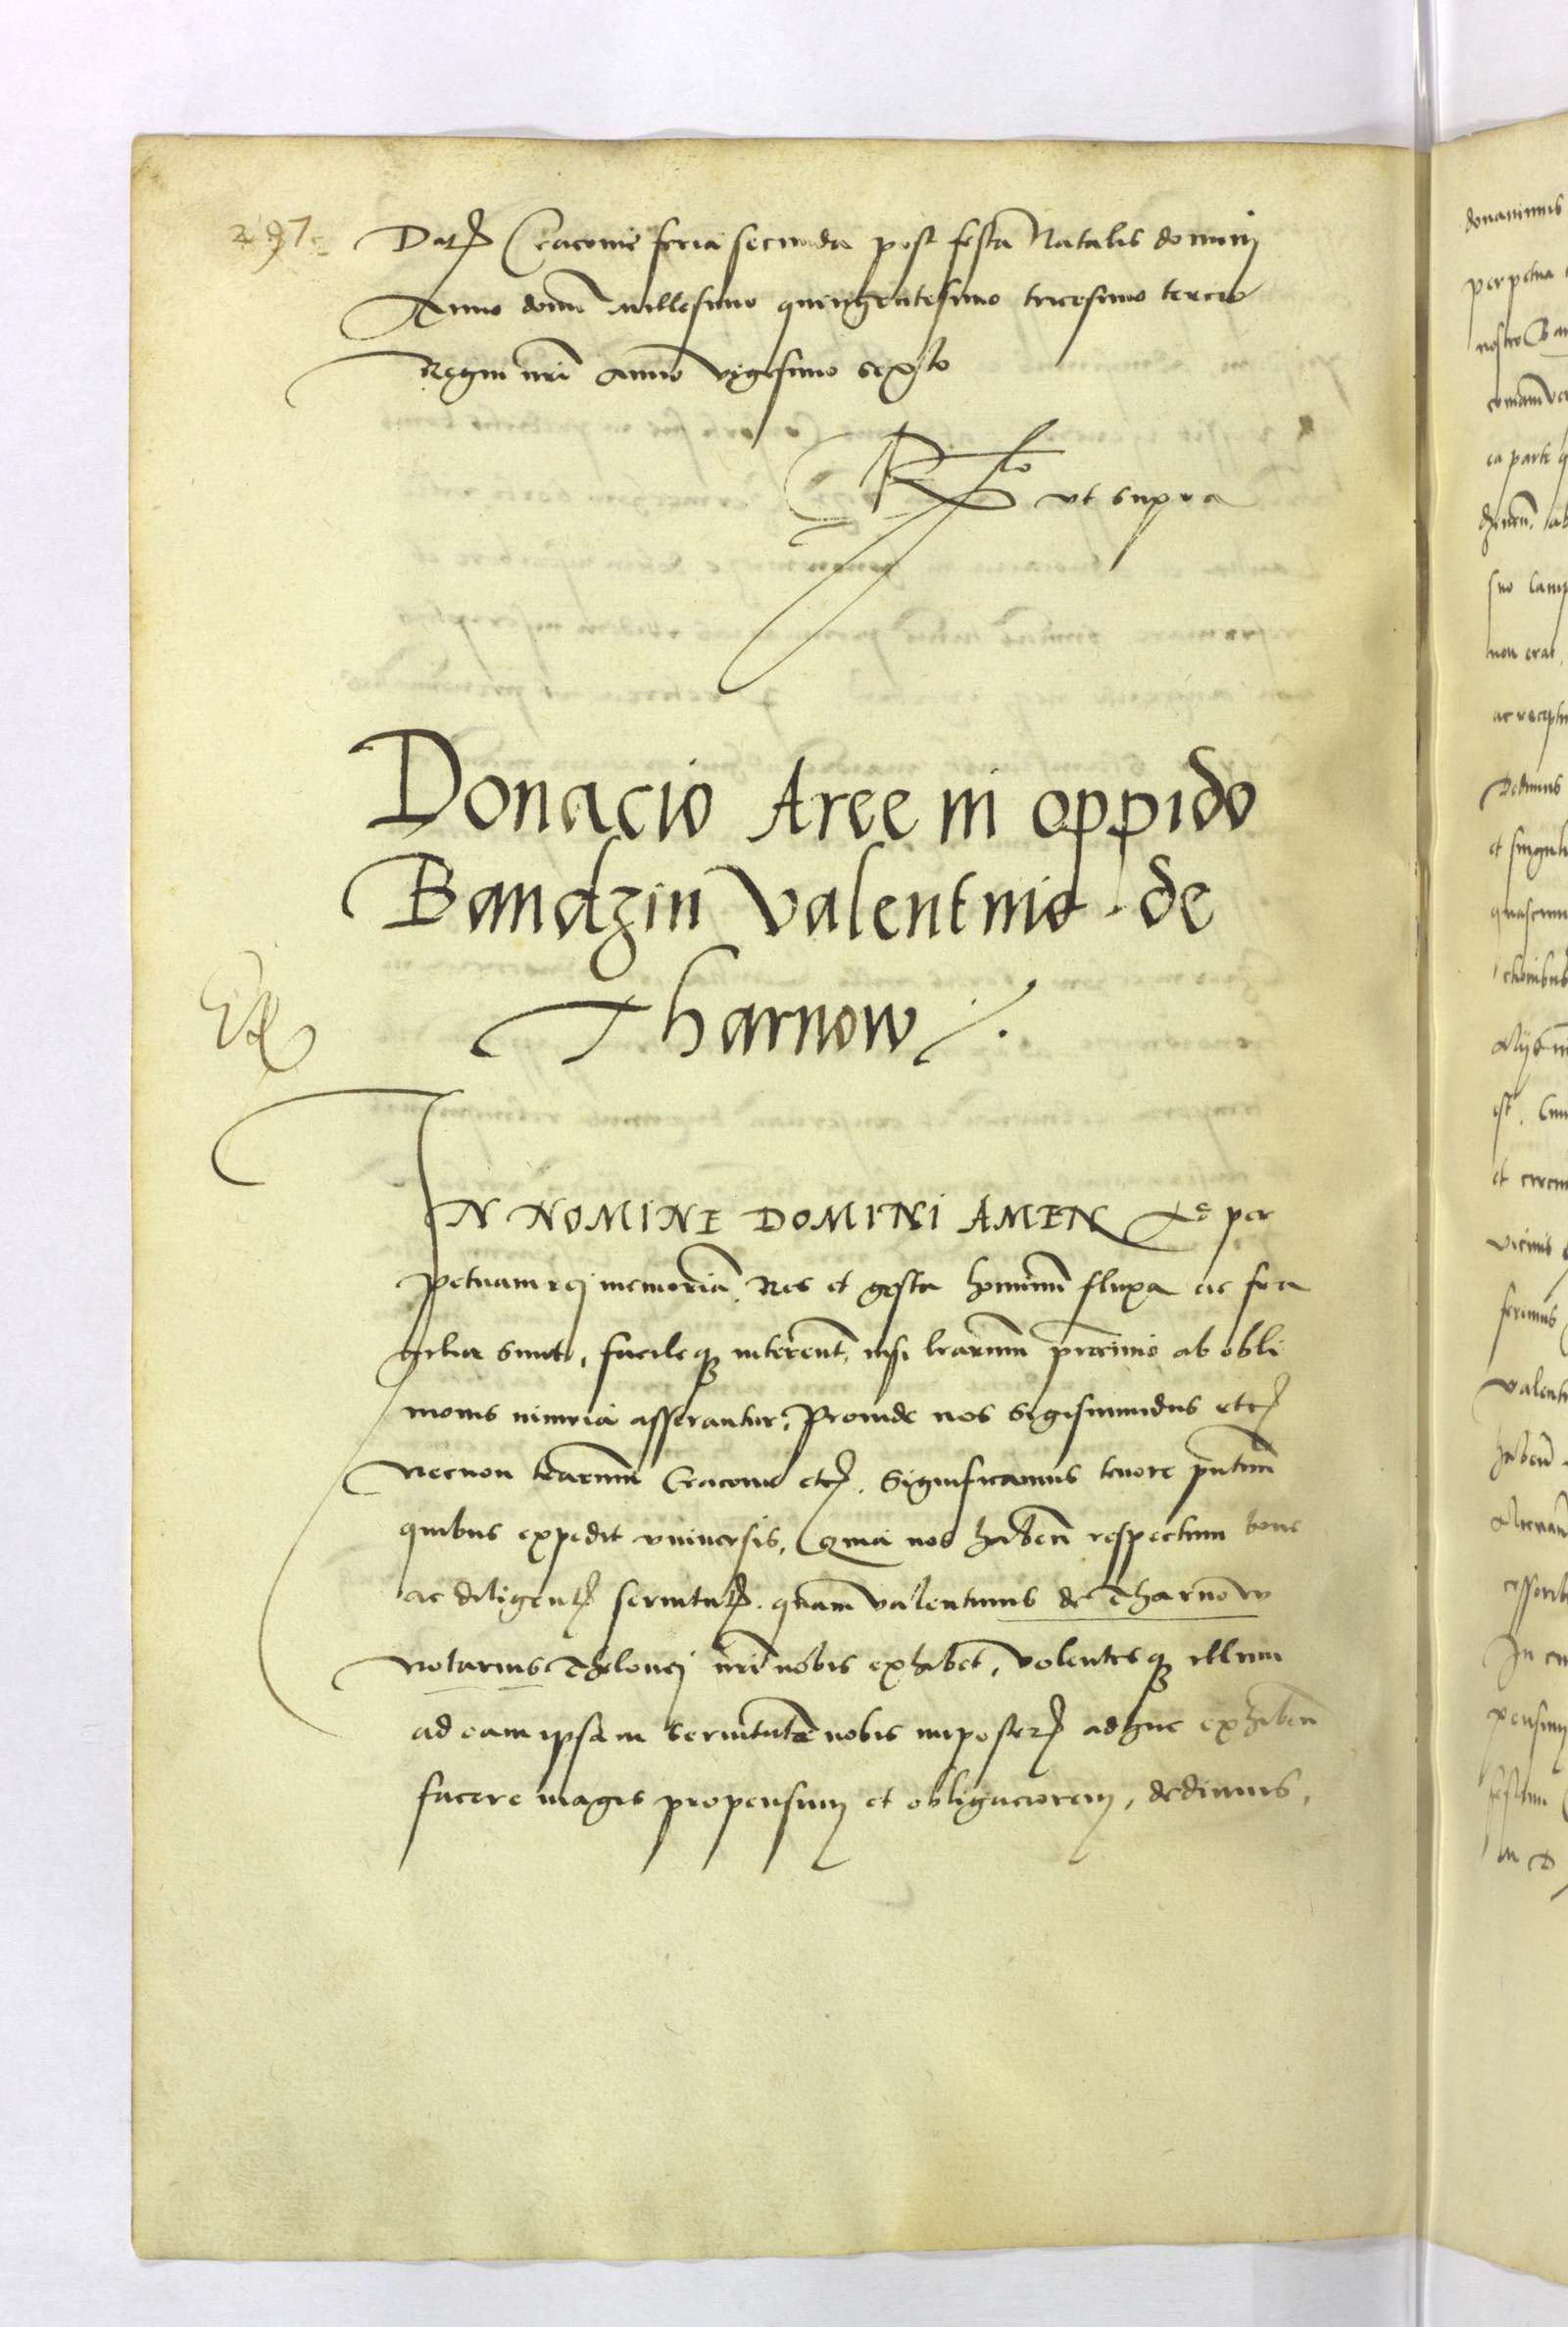 297
Dat Cracovie feria secunda post festa Natalis dominj
Anno domi millesimo quingentesimo tricesimo tercio
Regni nri anno vigesimo sexto
Rlo vt supra
Donacio Aree in oppido
Bandzin Valentino de
Tharnow
IN NOMINE DOMINI AMEN Ad per
petuam rej memoria. Res et gesta hominum fluxa ac fra
gilia sunt, facileq interent, nisi lrarum precinio ab obli
vionis iniuria asserantur, Proinde nos Sigismundus etc
Necnon terarum Cracovie etc. Significamus tenore pntium
quibus expedit vniuersis, Quia nos haben respectum bone
ac diligent seruitut. quam Valentinus de Tharnow
Notarius Thelonej nri nobis exhibet, Volentesq illum
ad eam ipsam seruitute nobis imposter adhuc exhiben
facere magis propensum et obligaciorem, dedimus,
donauimus
perpetua
nostro Ban
ea parte
suo
non erat
Dedimus
et singulis
est. Cum
et
vicinis
Valent
haben
In cu